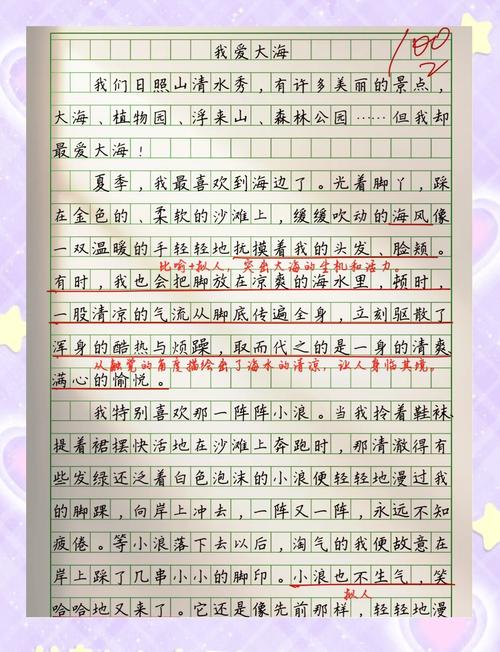 我爱大海
100
我们日照山清水秀，有许多美丽的景点，
大海、植物园、浮来山、森林公园……但我却
最爱大海！
夏季，我最喜欢到海边了。光着脚丫，踩
在金色的、柔软的沙滩上，缓缓吹动的海风像
一双温暖的手轻轻地扰摸着我的头发、脸颊。
比喻+拟人，突出大海的生机和活力。
有时，我也会把脚放在凉爽的海水里，顿时，
一股清凉的气流从脚底传遍全身，立刻驱散了
浑身的酷热与烦躁，取而代之的是一身的清爽
从触觉的角度描绘出了海水的清凉，让人身临其境。
满心的愉悦。
我特别喜欢那一阵阵小浪。当我拎着鞋袜
提着裙摆快活地在沙滩上奔跑时，那清澈得有
些发绿还泛着白色泡沫的小浪便轻轻地漫过我
的脚踝，向岸上冲去，一阵又一阵，永远不知
疲倦。等小浪落下去以后，淘气的我便故意在
岸上踩了几串小小的脚印。小浪也不生气，笑
拟人
哈哈地又来了。它还是像先前那样，轻轻地漫